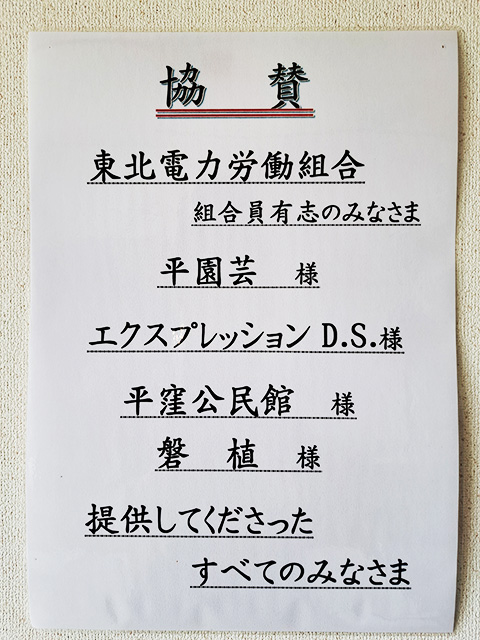 協　賛
東北電力労働組合
組合員有志のみなさま
平園芸　様
エクスプレッション D.S.様
平窪公民館　様
磐　植　様
提供してくださった
すべてのみなさま